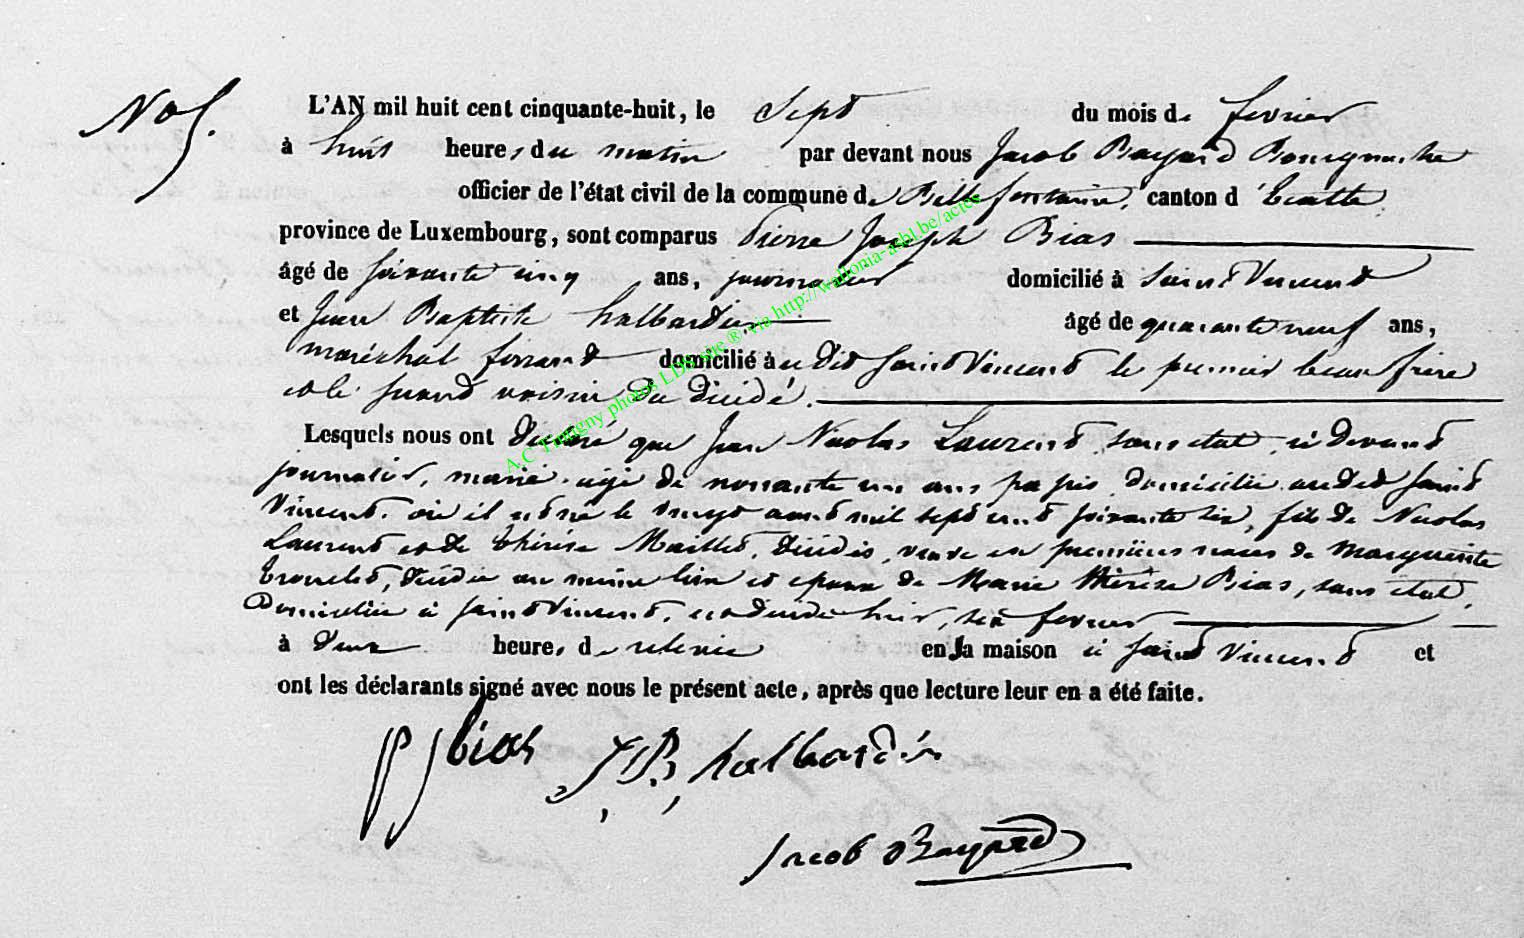 No 5.
L'AN mil huit cent cinquante-huit, le sept du mois de fevrier
à huit heures du matin par devant nous Jacob Bayard Bourgmestre
officier de l'état civil de la commune de Bellefontaine, canton d'Etalle
province de Luxembourg, sont comparus Pierre Joseph Bias
âgé de soixante cinq ans, journalier domicilié à Saint Vincent
et Jean Baptiste halbardier âgé de quarante neuf ans,
maréchal ferrant domicilié à u dit Saint Vincent le premier beau frère
et le second voisin du décédé.
Lesquels nous ont déclaré que Jean Nicolas Laurent, sans etat, ci devant
journalier, marié, agé de nonante un ans passés, domicilié audit Saint
Vincent, où il est né le vingt aout mil sept cent soixante six, fils de Nicolas
Laurent et de Thérèse Maillet, décédés, veuf en premières noces de Marguerite
décédée au même lieu et epoux de Marie Thérèse Bias, sans etat,
domiciliée à Saint Vincent, est decédé hier, six fevrier
à deux heures de relevée en la maison à Saint Vincent et
ont les déclarants signé avec nous le présent acte, après que lecture leur en a été faite.
PJ bias J B, halbardier
Jacob Bayard
A.C Tintigny photos LDS site ® via http://wallonia-asbl.be/actes